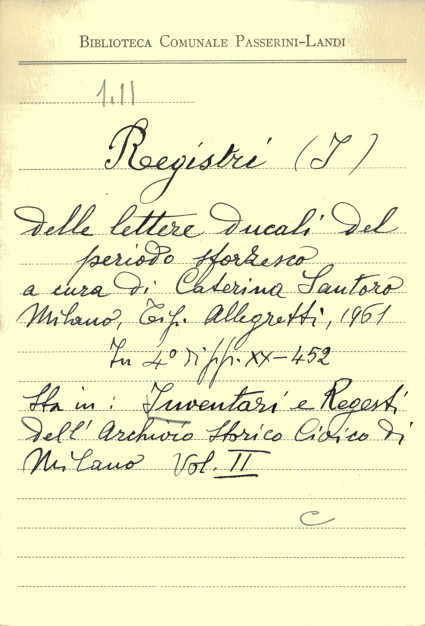 BIBLIOTECA COMUNALE PASSERINI-LANDI
1.II
Registri (I)
delle lettere ducali del
periodo sforzesco
a cura di Caterina Santoro
Milano, Tip. Allegretti, 1961
In 4° di pp. XX-452
Sta in: Inventari e Regesti
dell'Archivio Storico Civico di
Milano Vol. II
C